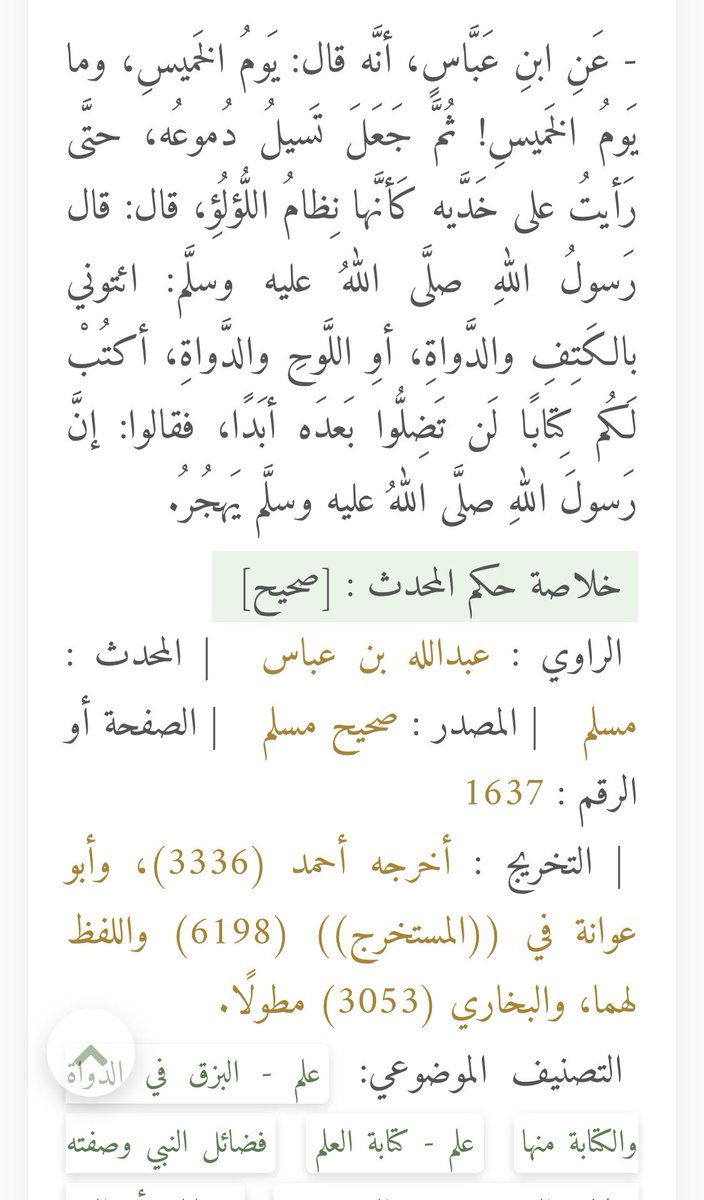 - عَنِ ابنِ عَبَّاسٍ، أنَّه قال: يَومُ الخَميسِ، وما
يَومُ الخَميسِ! ثُمَّ جَعَلَ تَسيلُ دُموعُه، حتَّى
رَأيتُ على خَدَّيه كَأنَّها نِظامُ اللُّؤلُؤِ، قال: قال
رَسولُ اللهِ صلَّى اللهُ عليه وسلَّم: ائتوني
بالكَتِفِ والدَّواةِ، أوِ اللَّوحِ والدَّواةِ، أكتُبْ
لَكُم كِتابًا لَن تَضِلُّوا بَعدَه أبَدًا، فقالوا: إنَّ
رَسولَ اللهِ صلَّى اللهُ عليه وسلَّم يَهجُرُ.
خلاصة حكم المحدث : [صحيح]
الراوي : عبدالله بن عباس | المحدث :
مسلم | المصدر : صحيح مسلم | الصفحة أو
الرقم : 1637
| التخريج : أخرجه أحمد (3336)، وأبو
عوانة في ((المستخرج)) (6198) واللفظ
لهما، والبخاري (3053) مطولًا.
التصنيف الموضوعي: علم - البزق في الدواة
والكتابة منها علم - كتابة العلم فضائل النبي وصفته